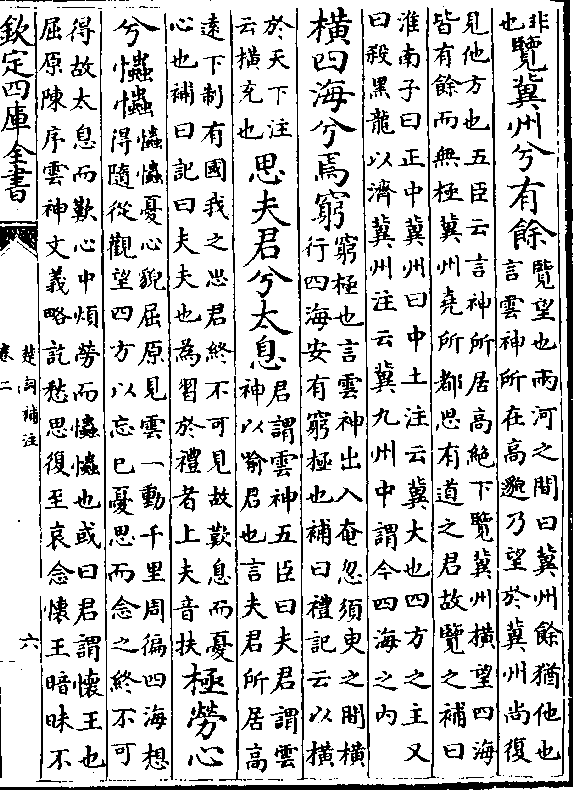 非
也
覽冀州兮有餘
覽望也兩河之間曰冀州餘猶他也
言雲神所在高邈乃望於冀州尚復
見他方也五臣云言神所居高絶下覽冀州橫望四海
皆有餘而無極冀州堯所都思有道之君故覽之補曰
淮南子曰正中冀州曰中土注云冀大也四方之主又
曰殺黑龍以濟冀州注云冀九州中謂今四海之内
橫四海兮焉窮
窮極也言雲神出入奄忽須臾之間橫
行四海安有窮極也補曰禮記云以橫
於天下注
云橫充也
思夫君兮太息
君謂雲神五臣曰夫君謂雲
神以喻君也言夫君所居高
遠下制有國我之思君終不可見故歎息而憂
心也補曰記曰夫夫也為習於禮者上夫音扶
極勞心
兮𢥞𢥞
𢥞𢥞憂心貌屈原見雲一動千里周徧四海想
得隨從觀望四方以忘己憂思而念之終不可
得故太息而歎心中煩勞而𢥞𢥞也或曰君謂懷王也
屈原陳序雲神文義略訖愁思復至哀念懷王暗昧不
欽定四庫全書
楚詞補注
卷二
六